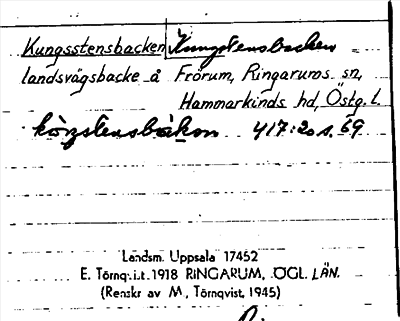 Kungsstensbacken Kungstensbacken
landsvägsbacke å Frörum, Ringarums sn,
Hammarkinds hd, Östg. l.
kõngstensbàkən 417:20 s. 69
Landsm. Uppsala 17452
E. Törnqv.i.t. 1918 RINGARUM, ÖGL. LÄN.
(Renskr av M. Törnqvist, 1945)